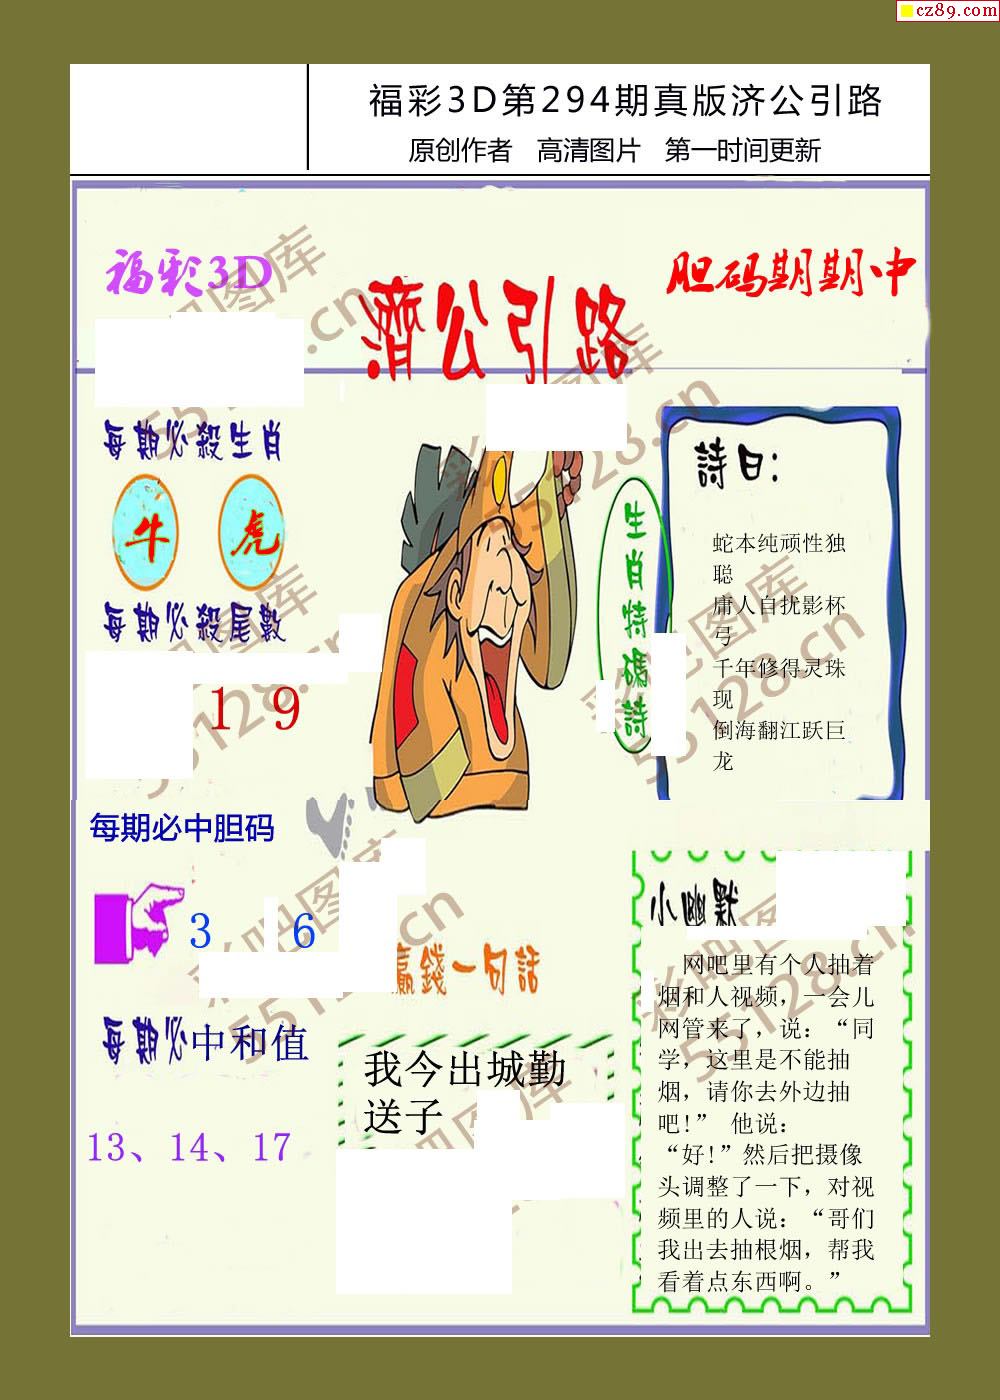 cz89.com
福彩3D第294期真版济公引路
原创作者 高清图片 第一时间更新
福彩3D
濟公引路
胆码期期中
每期必殺生肖
牛 虎
每期必殺尾數
1 9
每期必中胆码
3 6
每期必中和值
13、14、17
生肖特碼詩
詩曰：
蛇本纯顽性独
聪
庸人自扰影杯
弓
千年修得灵珠
现
倒海翻江跃巨
龙
贏錢一句話
我今出城勤
送子
小幽默
网吧里有个人抽着
烟和人视频，一会儿
网管来了，说：“同
学，这里是不能抽
烟，请你去外边抽
吧!” 他说：
“好!”然后把摄像
头调整了一下，对视
频里的人说：“哥们
我出去抽根烟，帮我
看着点东西啊。”
彩吧图库
55128.cn
彩吧图库
55128.cn
彩吧图库
55128.cn
彩吧图库
55128.cn
彩吧图库
55128.cn
彩吧图库
55128.cn